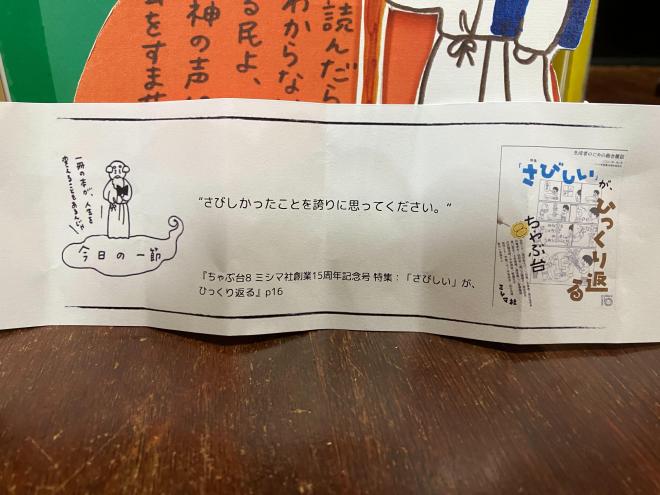 読んだら
わからない
る民よ、
神の声に
をすませ
一冊の本が、人生を
変えることもあるんじゃ
今日の一節
“さびしかったことを誇りに思ってください。”
『ちゃぶ台8 ミシマ社創業15周年記念号 特集：「さびしい」が、
ひっくり返る』p16
生活者のための総合雑誌
特集
「さびしい」が、
ひっくり返る
ちゃぶ台
ミシマ社